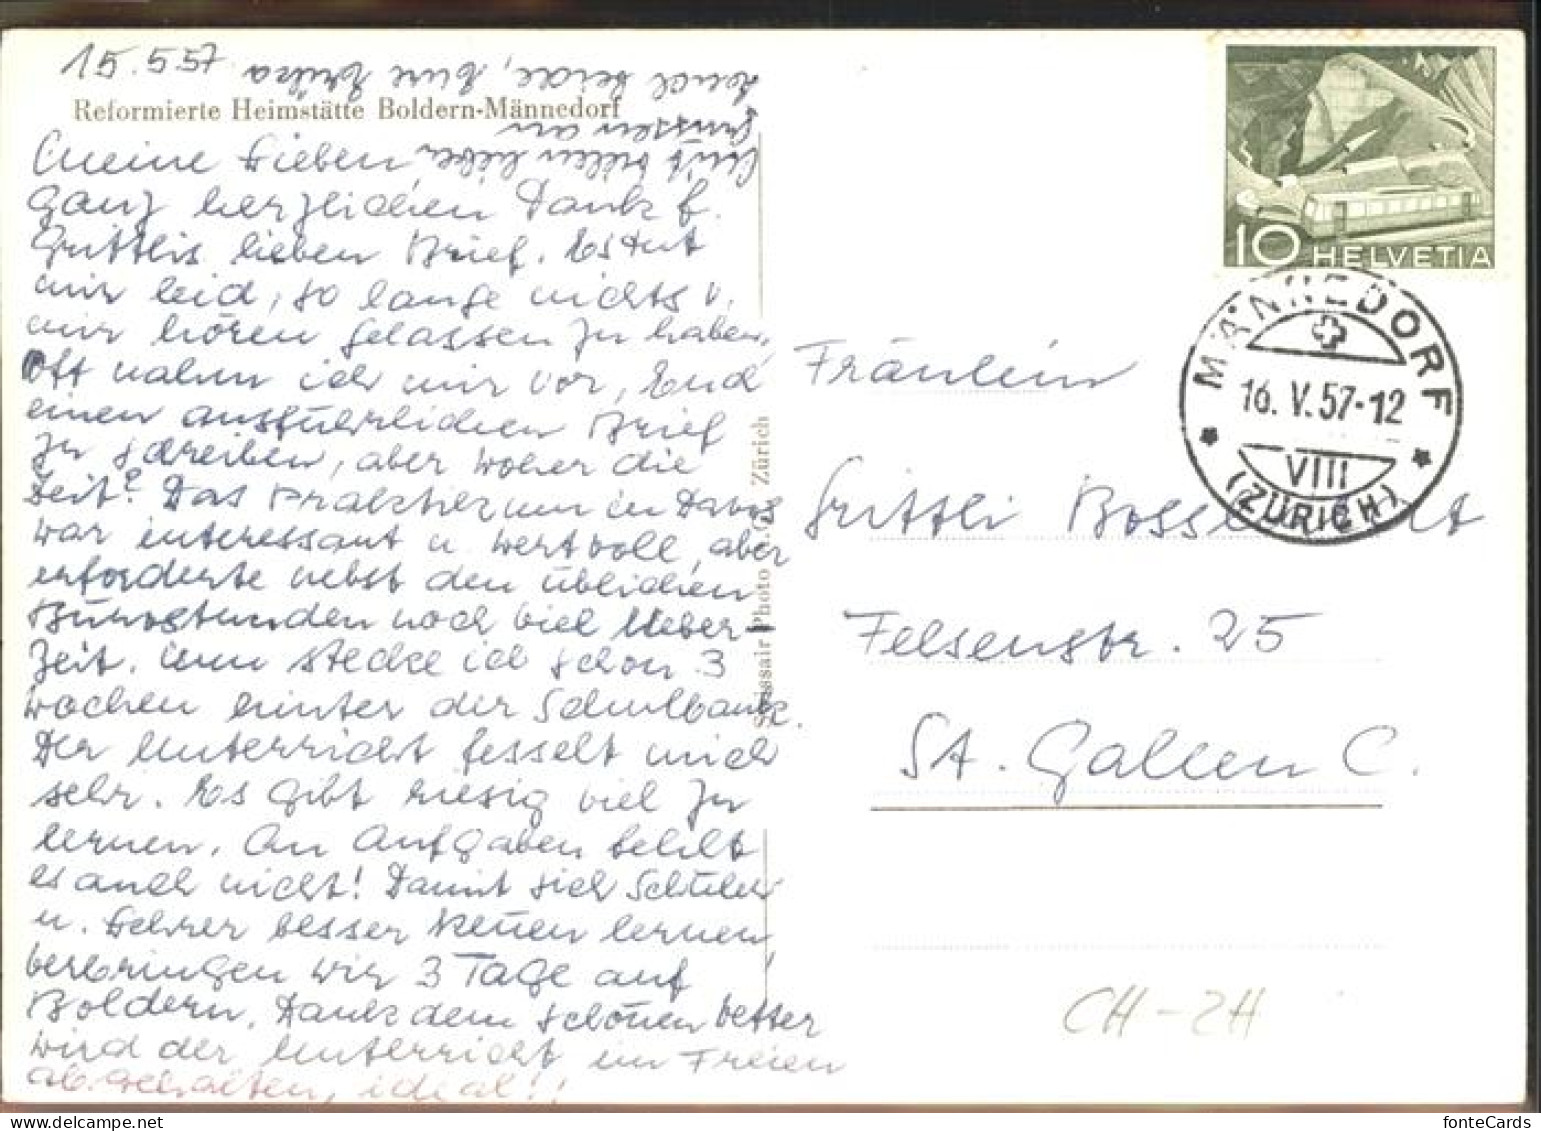 15.5.57
Reformierte Heimstätte Boldern-Männedorf
Meine Lieben,
Ganz herzlichen Dank f.
Grittlis lieben Brief. Es tut
mir leid, so lange nichts v.
mir hören gelassen zu haben,
Oft nahm ich mir vor, Euch
einen ausführlichen Brief
zu schreiben, aber woher die
Zeit? Das Praktikum in Davos
war interessant u. wertvoll, aber
erforderte nebst den üblichen
Bürostunden noch viel Ueber-
zeit. Nun stecke ich schon 3
Wochen hinter der Schulbank.
Der Unterricht fesselt mich
sehr. Es gibt riesig viel zu
lernen. An Aufgaben fehlt
es auch nicht! Damit sich Schüler
u. Lehrer besser kennen lernen,
verbringen wir 3 Tage auf
Boldern. Dank dem schönen Wetter
wird der Unterricht im Freien
abgehalten, ideal!!
Mit vielen lieben
Grüssen an
Euch beide, Eure Erika
Swissair Photo A.G. Zürich
10 HELVETIA
MÄNNEDORF
16.V.57-12
VIII
(ZÜRICH)
Fräulein
Grittli
Felsenstr. 25
St. Gallen C.
CH-ZH
fonteCards on delcampe.net